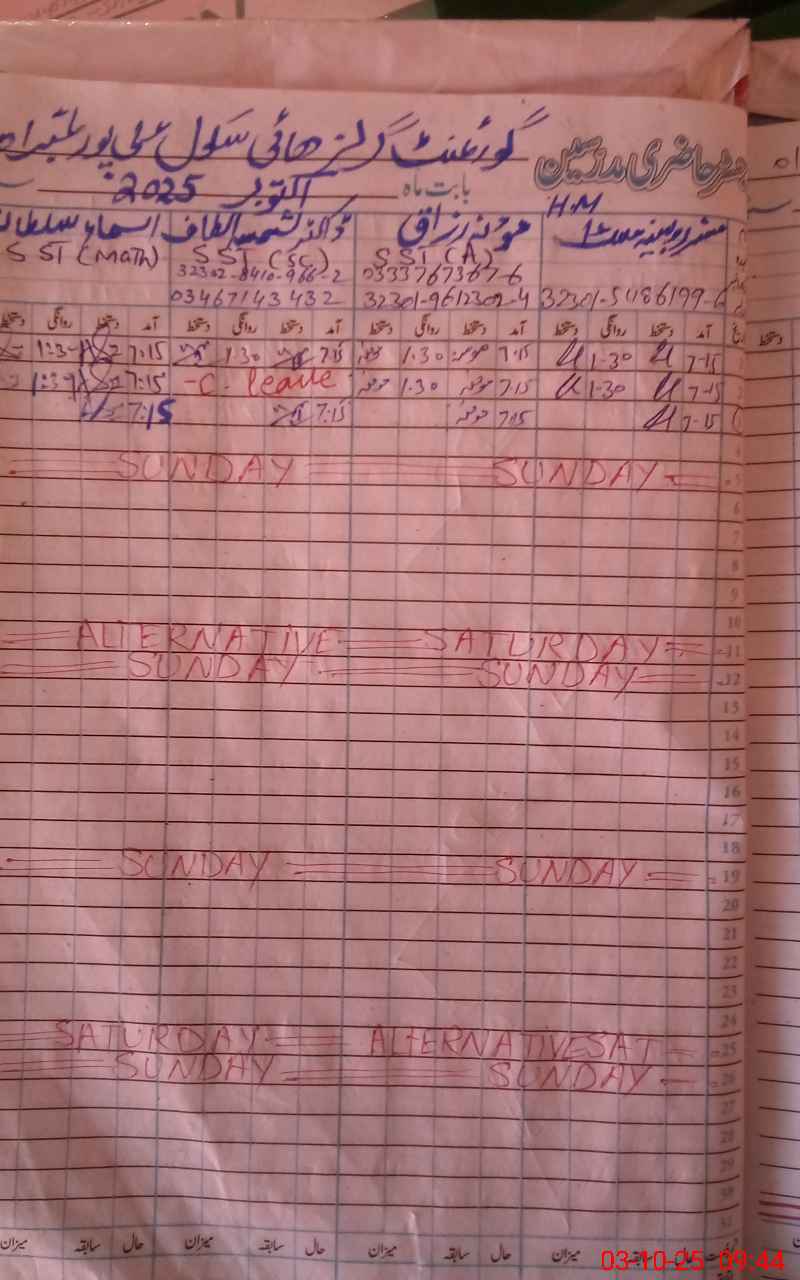 رجسٹر حاضری مدرسین گورنمنٹ گرلز ہائی سکول
بابت ماہ اکتوبر 2025
H.M
رزاق
ڈاکٹر الطاف
اسماء سلطانہ
SST (A)
SST (SC)
SST (Math)
03337673676
32302-8410-966-2
32301-5486199-6
32301-9612309-4
03467143432
آمد دستخط روانگی دستخط آمد دستخط روانگی دستخط آمد دستخط روانگی دستخط آمد دستخط روانگی دستخط
7-15 1-30 7.15 1.30 7:15 1.30 7:15
7-15 1-30 7.15 1.30 -C- leave 7:15
7-15 7.15 7:15 7:15
4
SUNDAY SUNDAY 5
6
7
8
9
10
ALTERNATIVE SATURDAY 11
SUNDAY SUNDAY 12
13
14
15
16
17
18
SUNDAY SUNDAY 19
20
21
22
23
24
SATURDAY ALTERNATIVE SAT 25
SUNDAY SUNDAY 26
27
28
29
30
31
حال سابقہ میزان حال سابقہ میزان حال سابقہ میزان حال سابقہ میزان
03-10-25 09:44